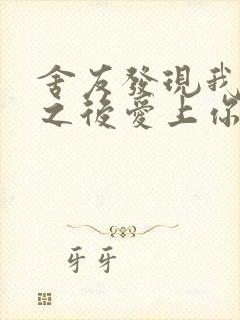 舍友發現我
之後愛上你
牙牙